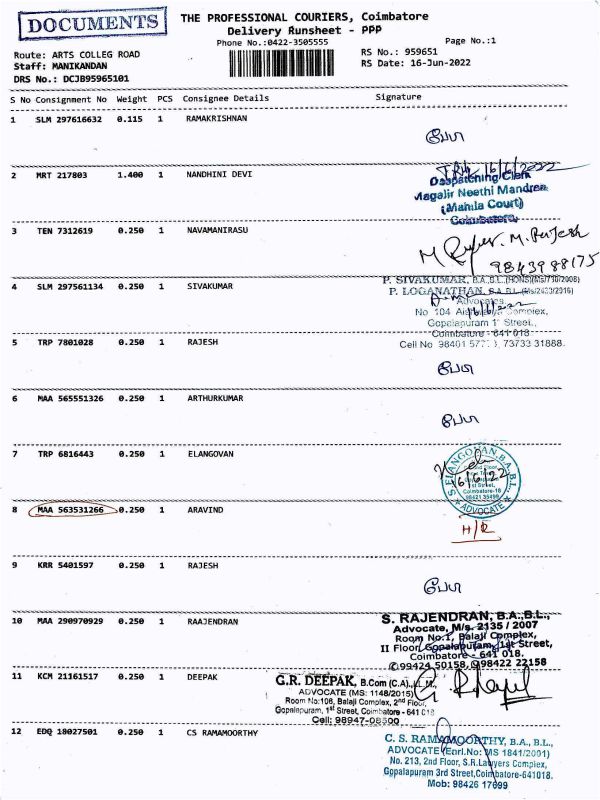 DOCUMENTS
THE PROFESSIONAL COURIERS, Coimbatore
Delivery Runsheet - PPP
Phone No.:0422-3505555
Page No.:1
Route: ARTS COLLEG ROAD
Staff: MANIKANDAN
DRS No.: DCJB95965101
RS No.: 959651
RS Date: 16-Jun-2022
S No Consignment No Weight PCS Consignee Details Signature
1 SLM 297616632 0.115 1 RAMAKRISHNAN
2 MRT 217803 1.400 1 NANDHINI DEVI
16/6/2022
Despatching Clerk
Magalir Neethi Mandram
(Mahila Court)
Coimbatore
3 TEN 7312619 0.250 1 NAVAMANIRASU
M. Rajesh
9843988175
4 SLM 297561134 0.250 1 SIVAKUMAR
P. SIVAKUMAR, B.A.,B.L.,(HONS)(Ms/710/2008)
P. LOGANATHAN, B.A.,B.L.,(Ms/2433/2016)
Advocates
No 104 Complex,
Gopalapuram 1st Street,,
Coimbatore - 641 018.
Cell No 98401 73733 31888.
5 TRP 7801028 0.250 1 RAJESH
6 MAA 565551326 0.250 1 ARTHURKUMAR
7 TRP 6816443 0.250 1 ELANGOVAN
S. ELANGOVAN, B.A., B.L.
1st Street,
Coimbatore-18
ADVOCATE
16/6/22
8 MAA 563531266 0.250 1 ARAVIND
H/R
9 KRR 5401597 0.250 1 RAJESH
10 MAA 290970929 0.250 1 RAAJENDRAN
S. RAJENDRAN, B.A.,B.L.,
Advocate, M/s. 2135 / 2007
Room No.1, Balaji Complex,
II Floor, Gopalapuram, 1st Street,
Coimbatore - 641 018.
✆99424 50158, 098422 22158
11 KCM 21161517 0.250 1 DEEPAK
G.R. DEEPAK, B.Com (C.A)., LL.M.,
ADVOCATE (MS: 1148/2015)
Room No:108, Balaji Complex, 2nd Floor,
Gopalapuram, 1st Street, Coimbatore - 641 018
Cell: 98947-08500
12 EDQ 18027501 0.250 1 CS RAMAMOORTHY
C. S. RAMAMOORTHY, B.A., B.L.,
ADVOCATE (Enrl.No: MS 1841/2001)
No. 213, 2nd Floor, S.R.Lawyers Complex,
Gopalapuram 3rd Street,Coimbatore-641018.
Mob: 98426 17699